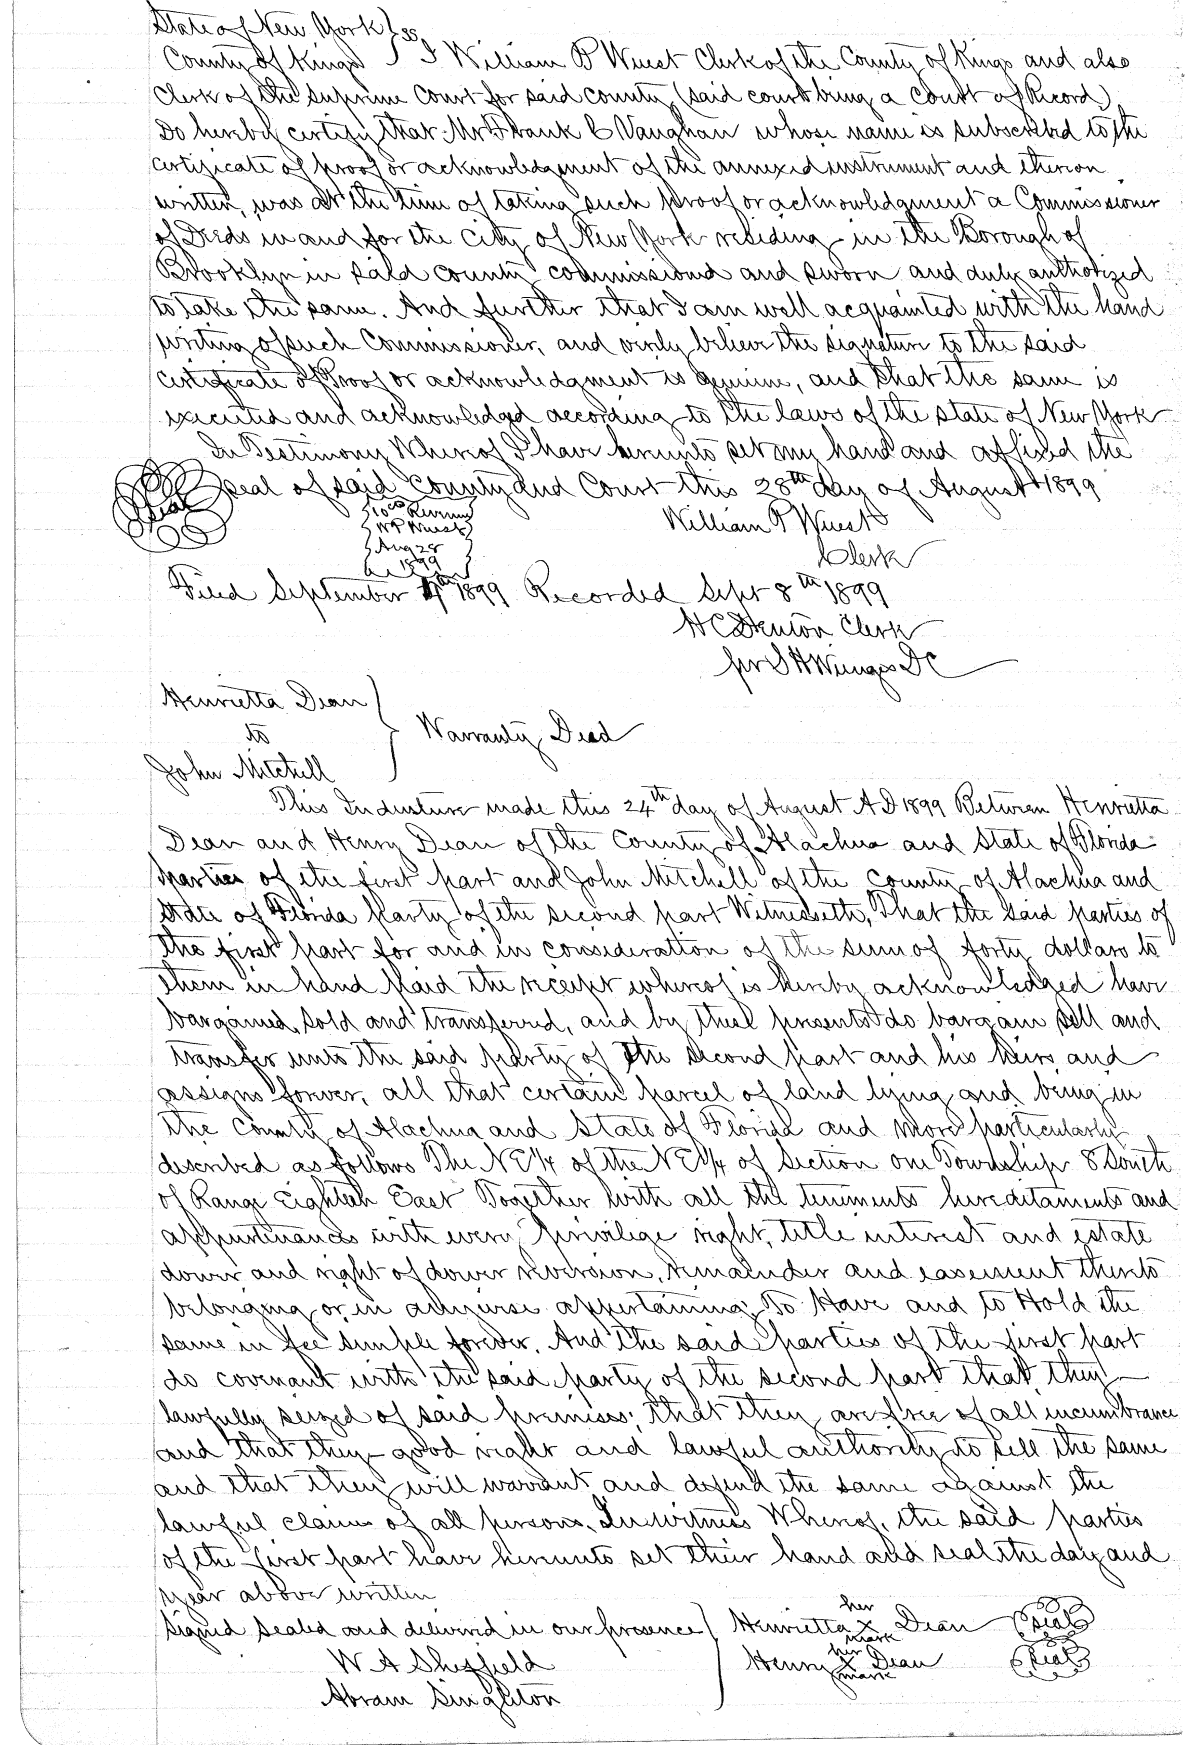 State of New York } ss
County of Kings } I William P Wuest Clerk of the County of Kings and also
Clerk of the Supreme Court for said county (said court being a Court of Record)
Do hereby certify that Mr Frank C Vaughan whose name is subscribed to the
certificate of proof or acknowledgment of the annexed instrument and thereon
written, was at the time of taking such proof or acknowledgment a Commissioner
of Deeds in and for the City of New York residing in the Borough of
Brooklyn in said county commissioned and sworn and duly authorized
to take the same. And further that I am well acquainted with the hand
writing of such Commissioner, and verily believe the signature to the said
certificate of Proof or acknowledgment is genuine, and that the same is
executed and acknowledged according to the laws of the state of New York
In Testimony Whereof I have hereunto set my hand and affixed the
Seal
seal of said County and Court this 28th day of August 1899
10cs Revenue
WP Wuest
Aug 28
1899
William P Wuest
Clerk
Filed September 4th 1899 Recorded Sept 8th 1899
H C Denton Clerk
pr S H Wienges DC
Henrietta Dean
to
John Mitchell
} Warranty Deed
This Indenture made this 24th day of August A D 1899 Between Henrietta
Dean and Henry Dean of the County of Alachua and State of Florida
parties of the first part and John Mitchell of the county of Alachua and
State of Florida party of the second part Witnesseth, That the said parties of
the first part for and in consideration of the sum of forty dollars to
them in hand paid the receipt whereof is hereby acknowledged have
bargained, sold and transferred, and by these presents do bargain sell and
transfer unto the said party of the second part and his heirs and
assigns forever, all that certain parcel of land lying and being in
the County of Alachua and State of Florida and more particularly
described as follows The NE1/4 of the NE1/4 of Section one Township 8 South
of Range Eighteen East Together with all the tenements hereditaments and
appurtenances with every privilege right, title interest and estate
dower and right of dower reversion, remainder and easement thereto
belonging or in anywise appertaining, To Have and to Hold the
same in fee simple forever. And the said parties of the first part
do covenant with the said party of the second part that they
lawfully seized of said premises; that they are free of all incumbrance
and that they good right and lawful authority to sell the same
and that they will warrant and defend the same against the
lawful claims of all persons. In witness Whereof, the said parties
of the first part have hereunto set their hand and seal the day and
year above written
Signed sealed and delivered in our presence } Henrietta her x mark Dean Seal
W A Sheffield
Henry her x mark Dean Seal
Abram Singleton